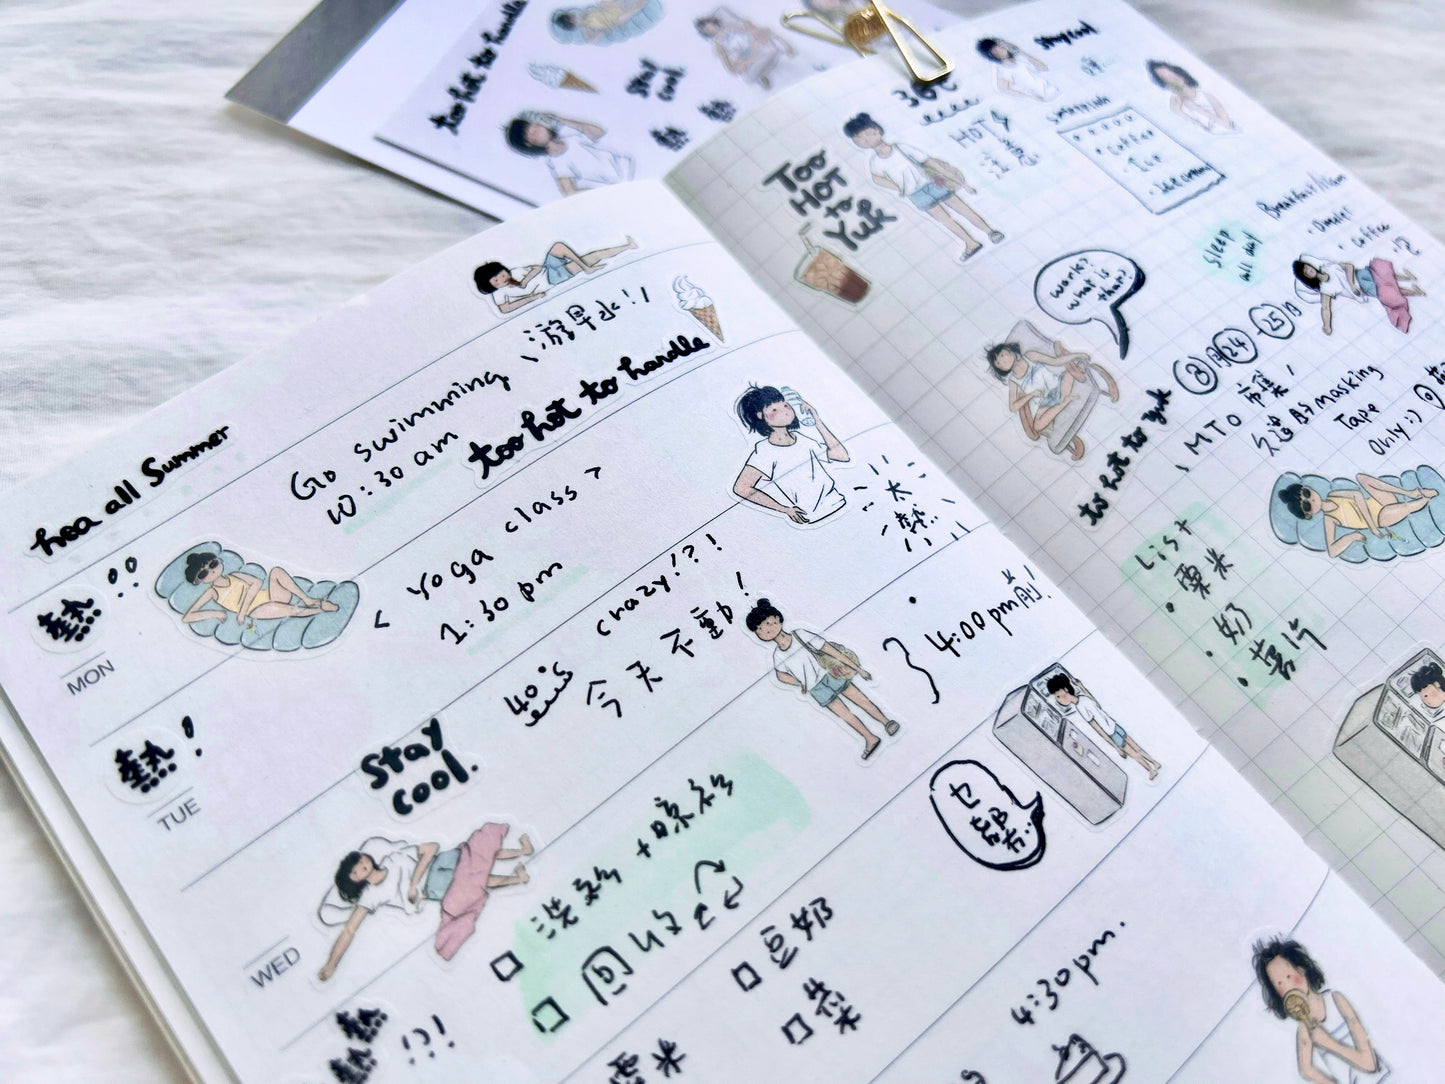 too hot to handle
Stay
cool
熱 熱
hea all Summer
熱!!
MON
Go swimming、游早水!!
10:30 am
too hot to handle
熱!
TUE
< Yoga class >
1:30 pm
太
熱
Stay
cool.
40°s crazy!?!
今天不動!
WED
4:00pm前!
乜
都冇..
洗衫+晾衫
回收
豆奶
菜
粟米
熱熱
熱
!?!
4:30pm.
Too
HOT
to
Yuk
36°C
HOT
注意
Stay cool
Coffee
Ice
Ice cream
Sleep
all day
Coffee
work?
what is
that?
to hot to yuk
8月24-25日
、MTO 市集!
masking
Tape
Only :)
List
・粟米
・奶
・薯片